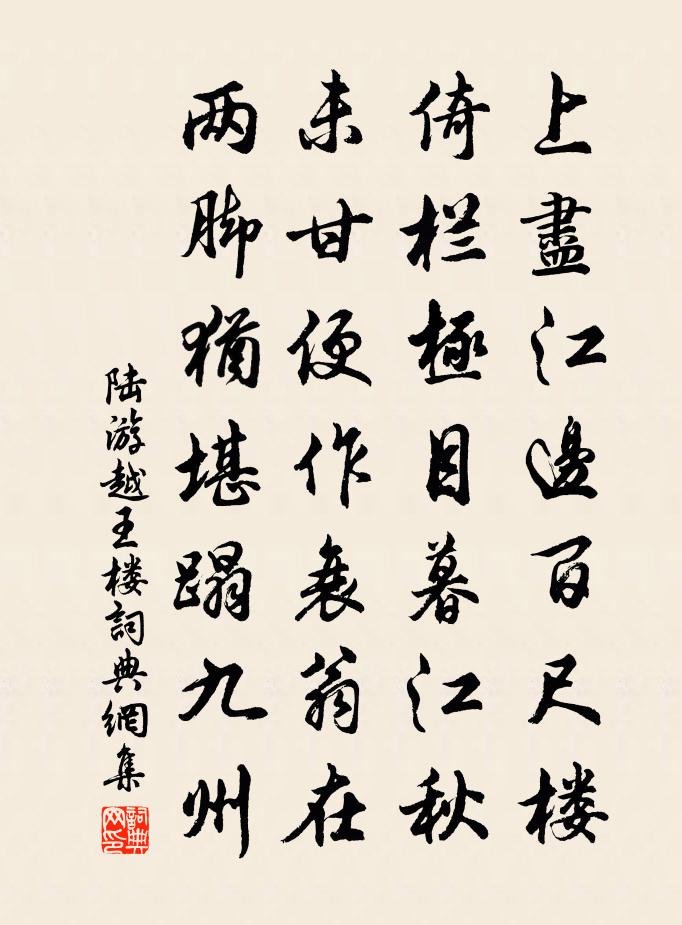 上盡江邊百尺楼
倚栏極目暮江秋
未甘便作衰翁在
两脚猶堪蹋九州
陆游越王楼詞典網集
詞典
网印